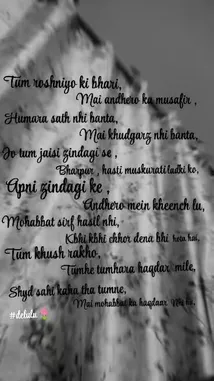 Tum roshniyo ki bhari,
Mai andhero ka musafir ,
Humara sath nhi banta,
Mai khudgarz nhi banta,
Jo tum jaisi zindagi se ,
Bharpur , hasti muskurati ladki ko,
Apni zindagi ke ,
Andhero mein kheench lu,
Mohabbat sirf hasil nhi,
Kbhi kbhi chhor dena bhi hota hai,
Tum khush rakho,
Tumhe tumhara haqdar mile,
Shyd sahi kaha tha tumne,
Mai mohabbat ka haqdaar Nhi hu,
#debdu 🌷